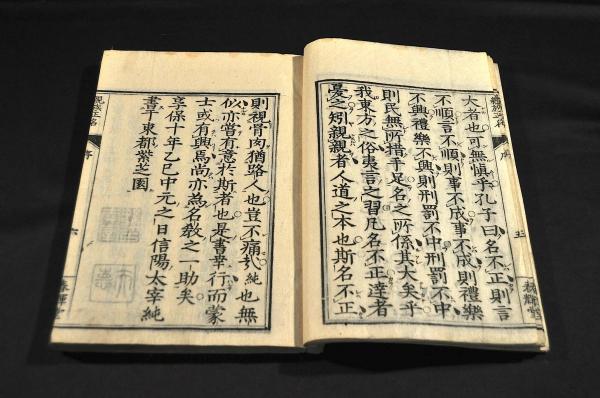 大者也可無愼乎孔子曰名不正則言
不順言不順則事不成事不成則禮樂
不興禮樂不興則刑罰不中刑罰不中
則民無所措手足名之所係其大矣乎
我東方之俗夷言之習凡名不正逹者
憂之矧親親者人道之本也斯名不正
則視骨肉猶路人也豈不痛哉純也無
似亦嘗有意於斯者也是書華行而蒙
士或有興焉尚亦為名教之一助矣
享保十年乙巳中元之日信陽太宰純
書于東都紫芝園
序
六